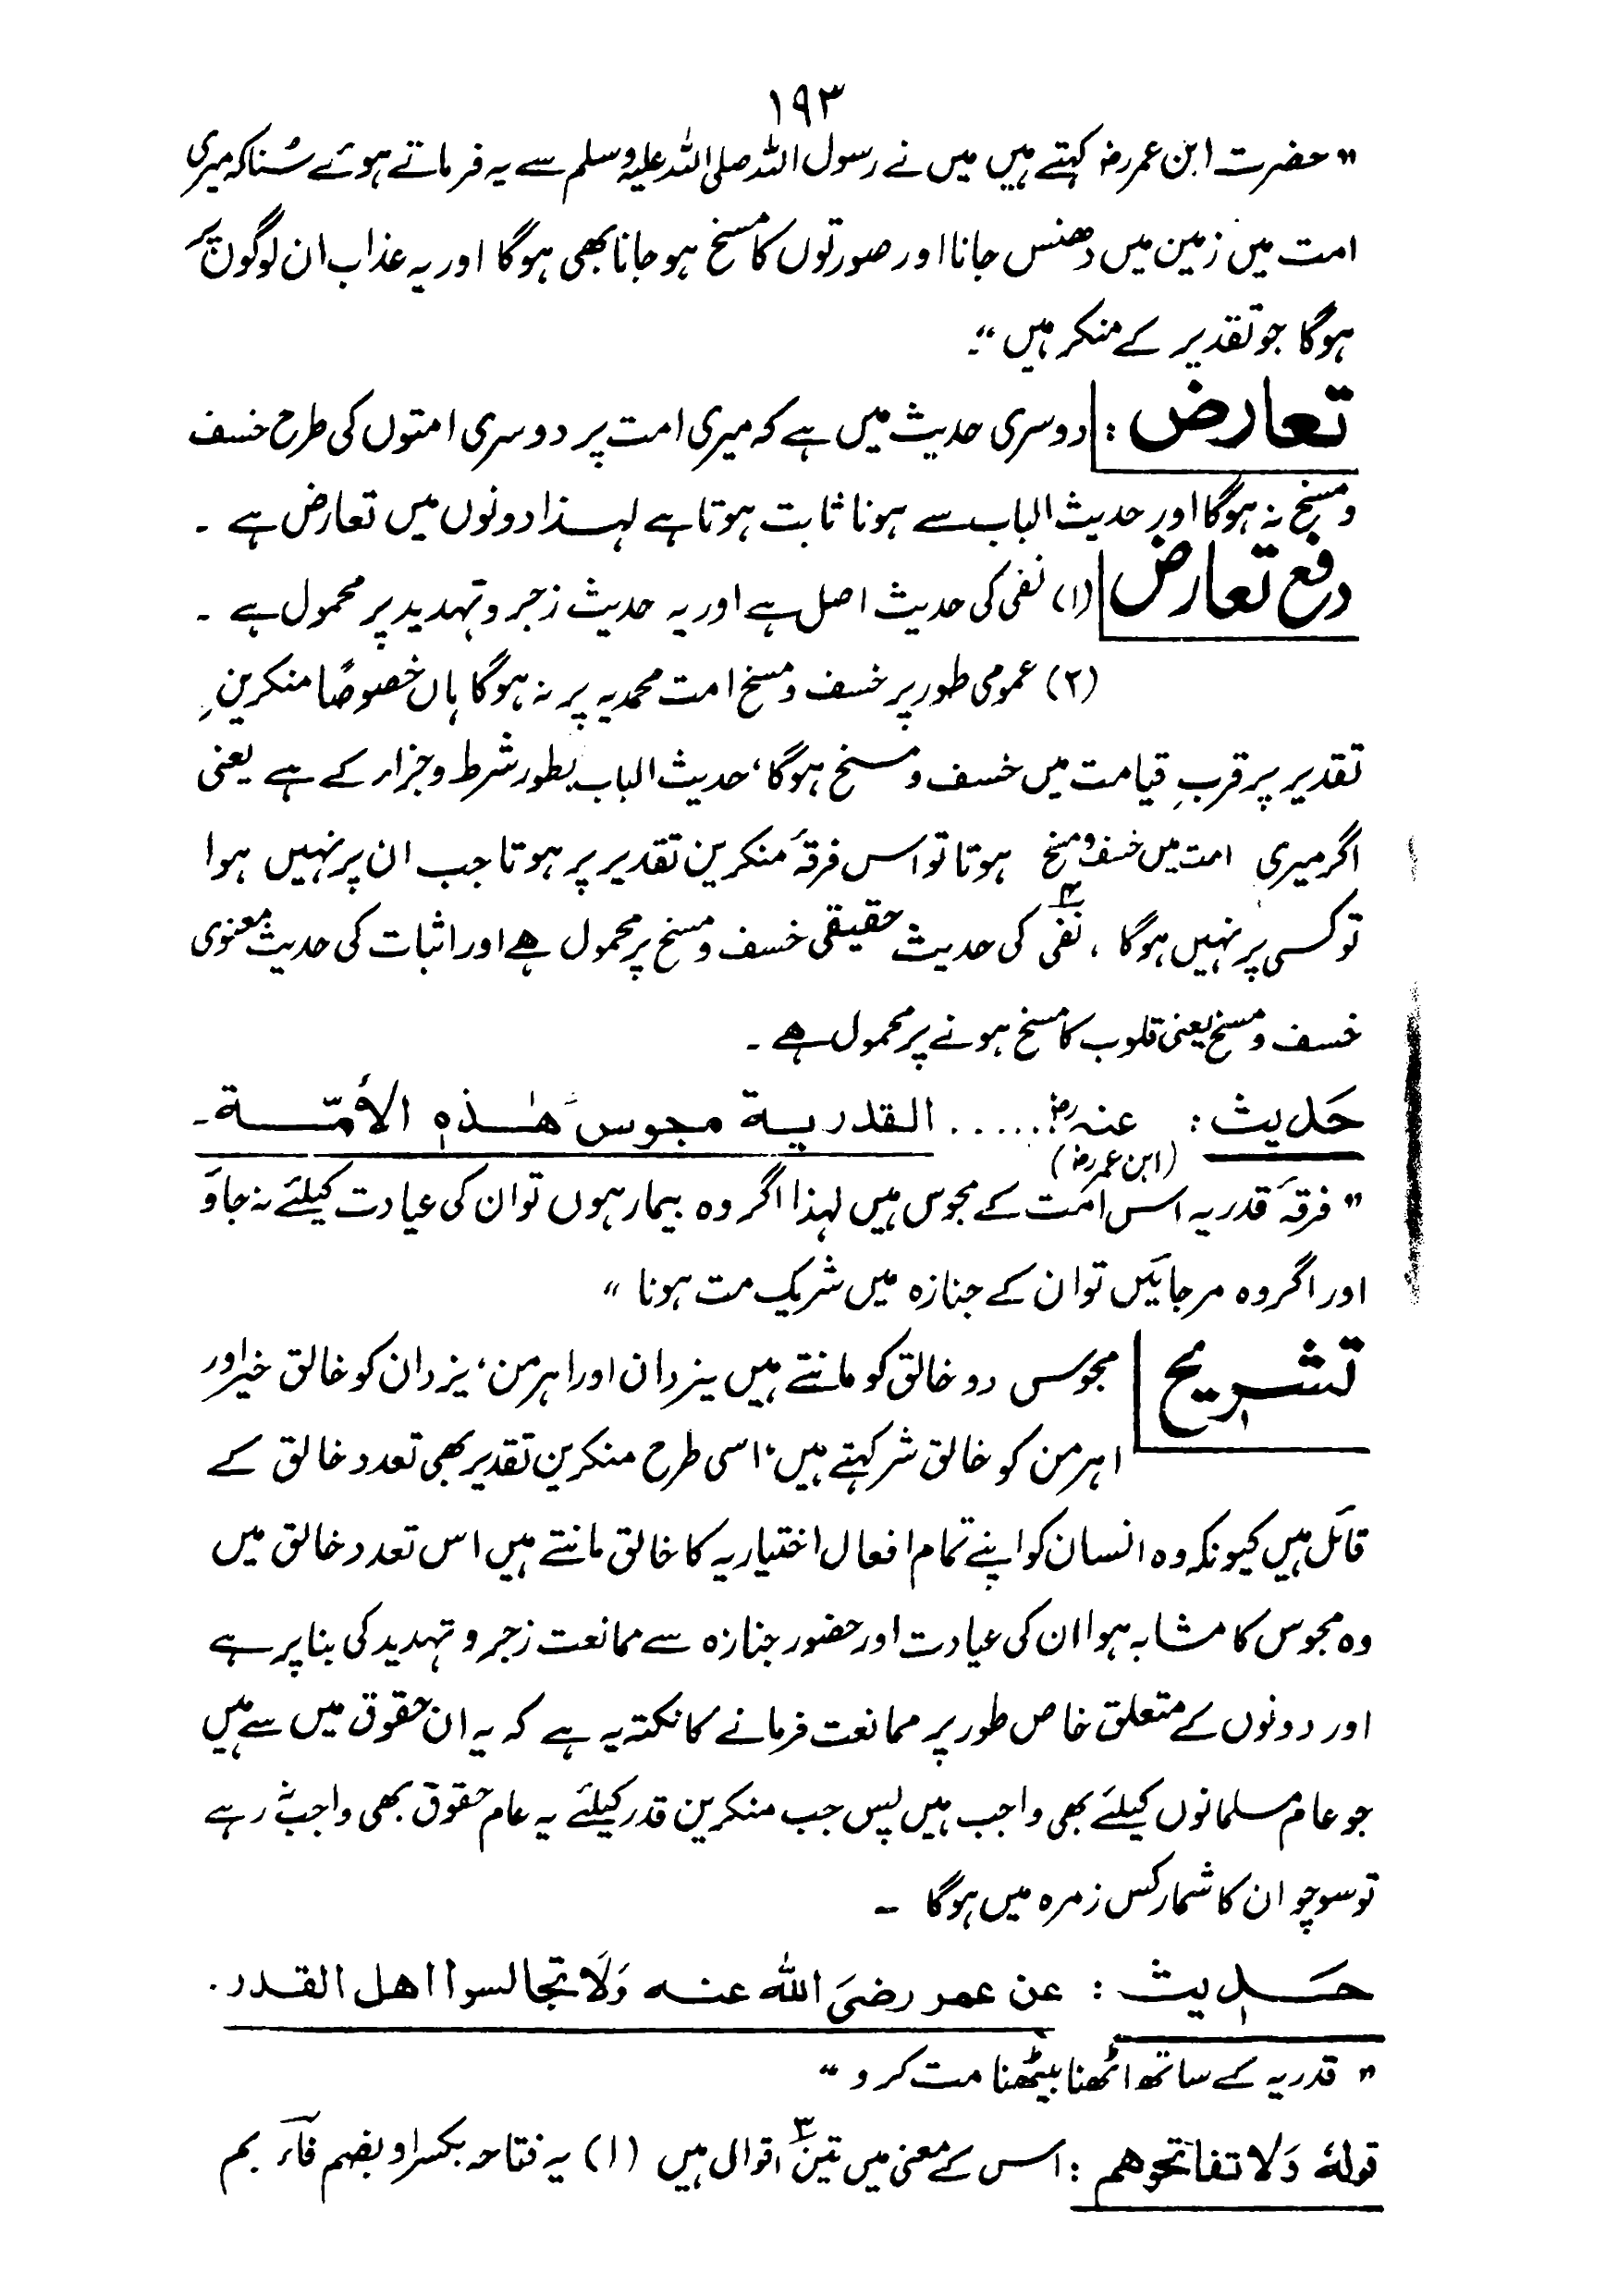 ۱۹۳
" حضرت ابن عمر رض کہتے ہیں میں نے رسول اللہ صلی اللہ علیہ وسلم سے یہ فرماتے ہوئے سُنا کہ میری
امت میں زمین میں دھنس جانا اور صورتوں کا مسخ ہو جانا بھی ہوگا اور یہ عذاب ان لوگوں پر
ہوگا جو تقدیر کے منکر ہیں "۔
تعارض : دوسری حدیث میں ہے کہ میری امت پر دوسری امتوں کی طرح خسف
و مسخ نہ ہوگا اور حدیث الباب سے ہونا ثابت ہوتا ہے لہٰذا دونوں میں تعارض ہے ۔
دفع تعارض (۱) نفی کی حدیث اصل ہے اور یہ حدیث زجر و تہدید پر محمول ہے ۔
(۲) عمومی طور پر خسف و مسخ امت محمدیہ پر نہ ہوگا ہاں خصوصًا منکرینِ
تقدیر پر قربِ قیامت میں خسف و مسخ ہوگا، حدیث الباب بطور شرط و جزاء کے ہے یعنی
اگر میری امت میں خسف و مسخ ہوتا تو اس فرقۂ منکرین تقدیر پر ہوتا جب ان پر نہیں ہوا
تو کسی پر نہیں ہوگا ، نفی کی حدیث حقیقی خسف و مسخ پر محمول ہے اور اثبات کی حدیث معنوی
خسف و مسخ یعنی قلوب کا مسخ ہونے پر محمول ہے ۔
حَدیث : عنہ رض ..... القدریة مجوس هٰذه الأمّة ۔
(ابن عمر رض)
" فرقۂ قدریہ اس امت کے مجوس ہیں لہذا اگر وہ بیمار ہوں تو ان کی عیادت کیلئے نہ جاؤ
اور اگر وہ مرجائیں تو ان کے جنازہ میں شریک مت ہونا "
تشریح مجوس دو خالق کو مانتے ہیں یزدان اور اہرمن، یزدان کو خالق خیر اور
اہرمن کو خالق شر کہتے ہیں، اسی طرح منکرین تقدیر بھی تعدد خالق کے
قائل ہیں کیونکہ وہ انسان کو اپنے تمام افعال اختیاریہ کا خالق مانتے ہیں اس تعدد خالق میں
وہ مجوس کا مشابہ ہوا ان کی عیادت اور حضور جنازہ سے ممانعت زجر و تہدید کی بنا پر ہے
اور دونوں کے متعلق خاص طور پر ممانعت فرمانے کا نکتہ یہ ہے کہ یہ ان حقوق میں سے ہیں
جو عام مسلمانوں کیلئے بھی واجب ہیں پس جب منکرین قدر کیلئے یہ عام حقوق بھی واجب نہ رہے
تو سوچو ان کا شمار کس زمرہ میں ہوگا ۔
حَدیث : عن عمر رضیَ اللّٰه عنه وَلَا تجالسوا اهل القدر .
" قدریہ کے ساتھ اٹھنا بیٹھنا مت کرو "
قولهٗ وَلا تفاتحوهم : اس کے معنی میں تین اقوال ہیں (۱) یہ فتاحہ بکسر او بضم فاء بم